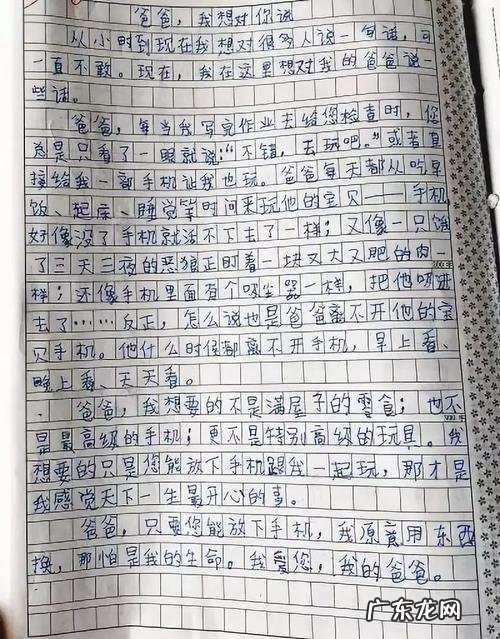 爸爸，我想对你说
从小时到现在我想对很多人说一句话，可
一直不敢。现在，我在这里想对我的爸爸说一
些话。
爸爸，每当我写完作业去给您检查时，您
总是只看了一眼就说：“不错，去玩吧。”或者直
接给我一部手机让我也玩。爸爸每天都从吃早
饭、起床、睡觉等时间来玩他的宝贝——手机
好像没了手机就活不下去了一样；又像一只饿
了三天三夜的恶狼正盯着一块又大又肥的肉一
样；还像手机里面有个吸尘器一样，把他吸进
去了……反正，怎么说也是爸爸离不开他的宝
贝手机。他什么时候都离不开手机，早上看、
晚上看、天天看。
爸爸，我想要的不是满屋子的零食；也不
是最高级的手机；更不是特别高级的玩具。我
想要的只是您能放下手机跟我一起玩，那才是
我感觉天下一生最开心的事。
爸爸，只要您能放下手机，我原意用东西
换，那怕是我的生命。我爱您，我的爸爸。
广东龙网